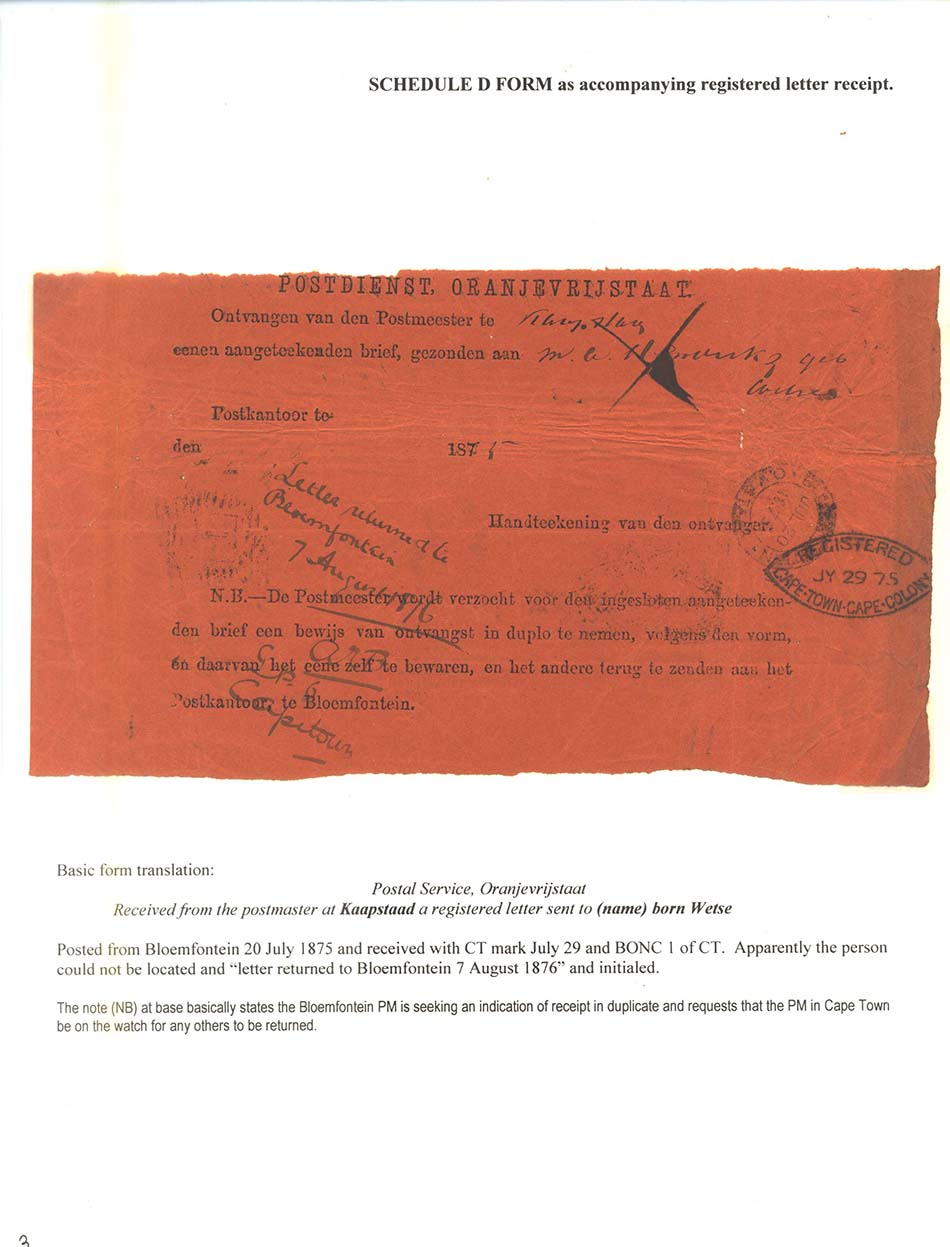 SCHEDULE D FORM as accompanying registered letter receipt.
POSTDIENST, ORANJEVRIJSTAAT.
Ontvangen van den Postmeester te Kaapstad
eenen aangeteekenden brief, gezonden aan M. C. geb
Postkantoor te
den 1875
Letter returned to
Bloemfontein
7 August 1876
Handteekening van den ontvanger.
REGISTERED
JY 29 75
CAPE-TOWN-CAPE-COLONY
N.B.—De Postmeester wordt verzocht voor den ingesloten aangeteeken-
den brief een bewijs van ontvangst in duplo te nemen, volgens den vorm,
én daarvan het eene zelf te bewaren, en het andere terug te zenden aan het
Postkantoor, te Bloemfontein.
Capetown
Basic form translation:
Postal Service, Oranjevrijstaat
Received from the postmaster at Kaapstaad a registered letter sent to (name) born Wetse
Posted from Bloemfontein 20 July 1875 and received with CT mark July 29 and BONC 1 of CT. Apparently the person
could not be located and “letter returned to Bloemfontein 7 August 1876” and initialed.
The note (NB) at base basically states the Bloemfontein PM is seeking an indication of receipt in duplicate and requests that the PM in Cape Town
be on the watch for any others to be returned.
3